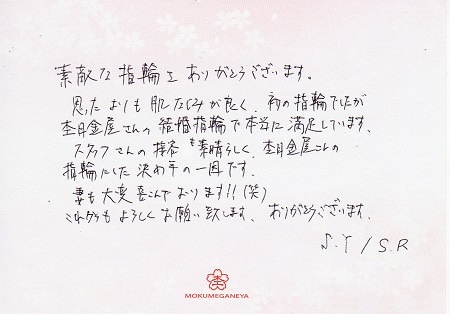 素敵な指輪をありがとうございます。
思ったよりも肌なじみが良く、初の指輪でしたが
杢目金屋さんの結婚指輪で本当に満足しています。
スタッフさんの接客も素晴らしく、杢目金屋さんの
指輪にした決め手の一因です。
妻も大変喜んでおります!!(笑)
これからもよろしくお願い致します。ありがとうございます。
S.Y / S.R
MOKUMEGANEYA